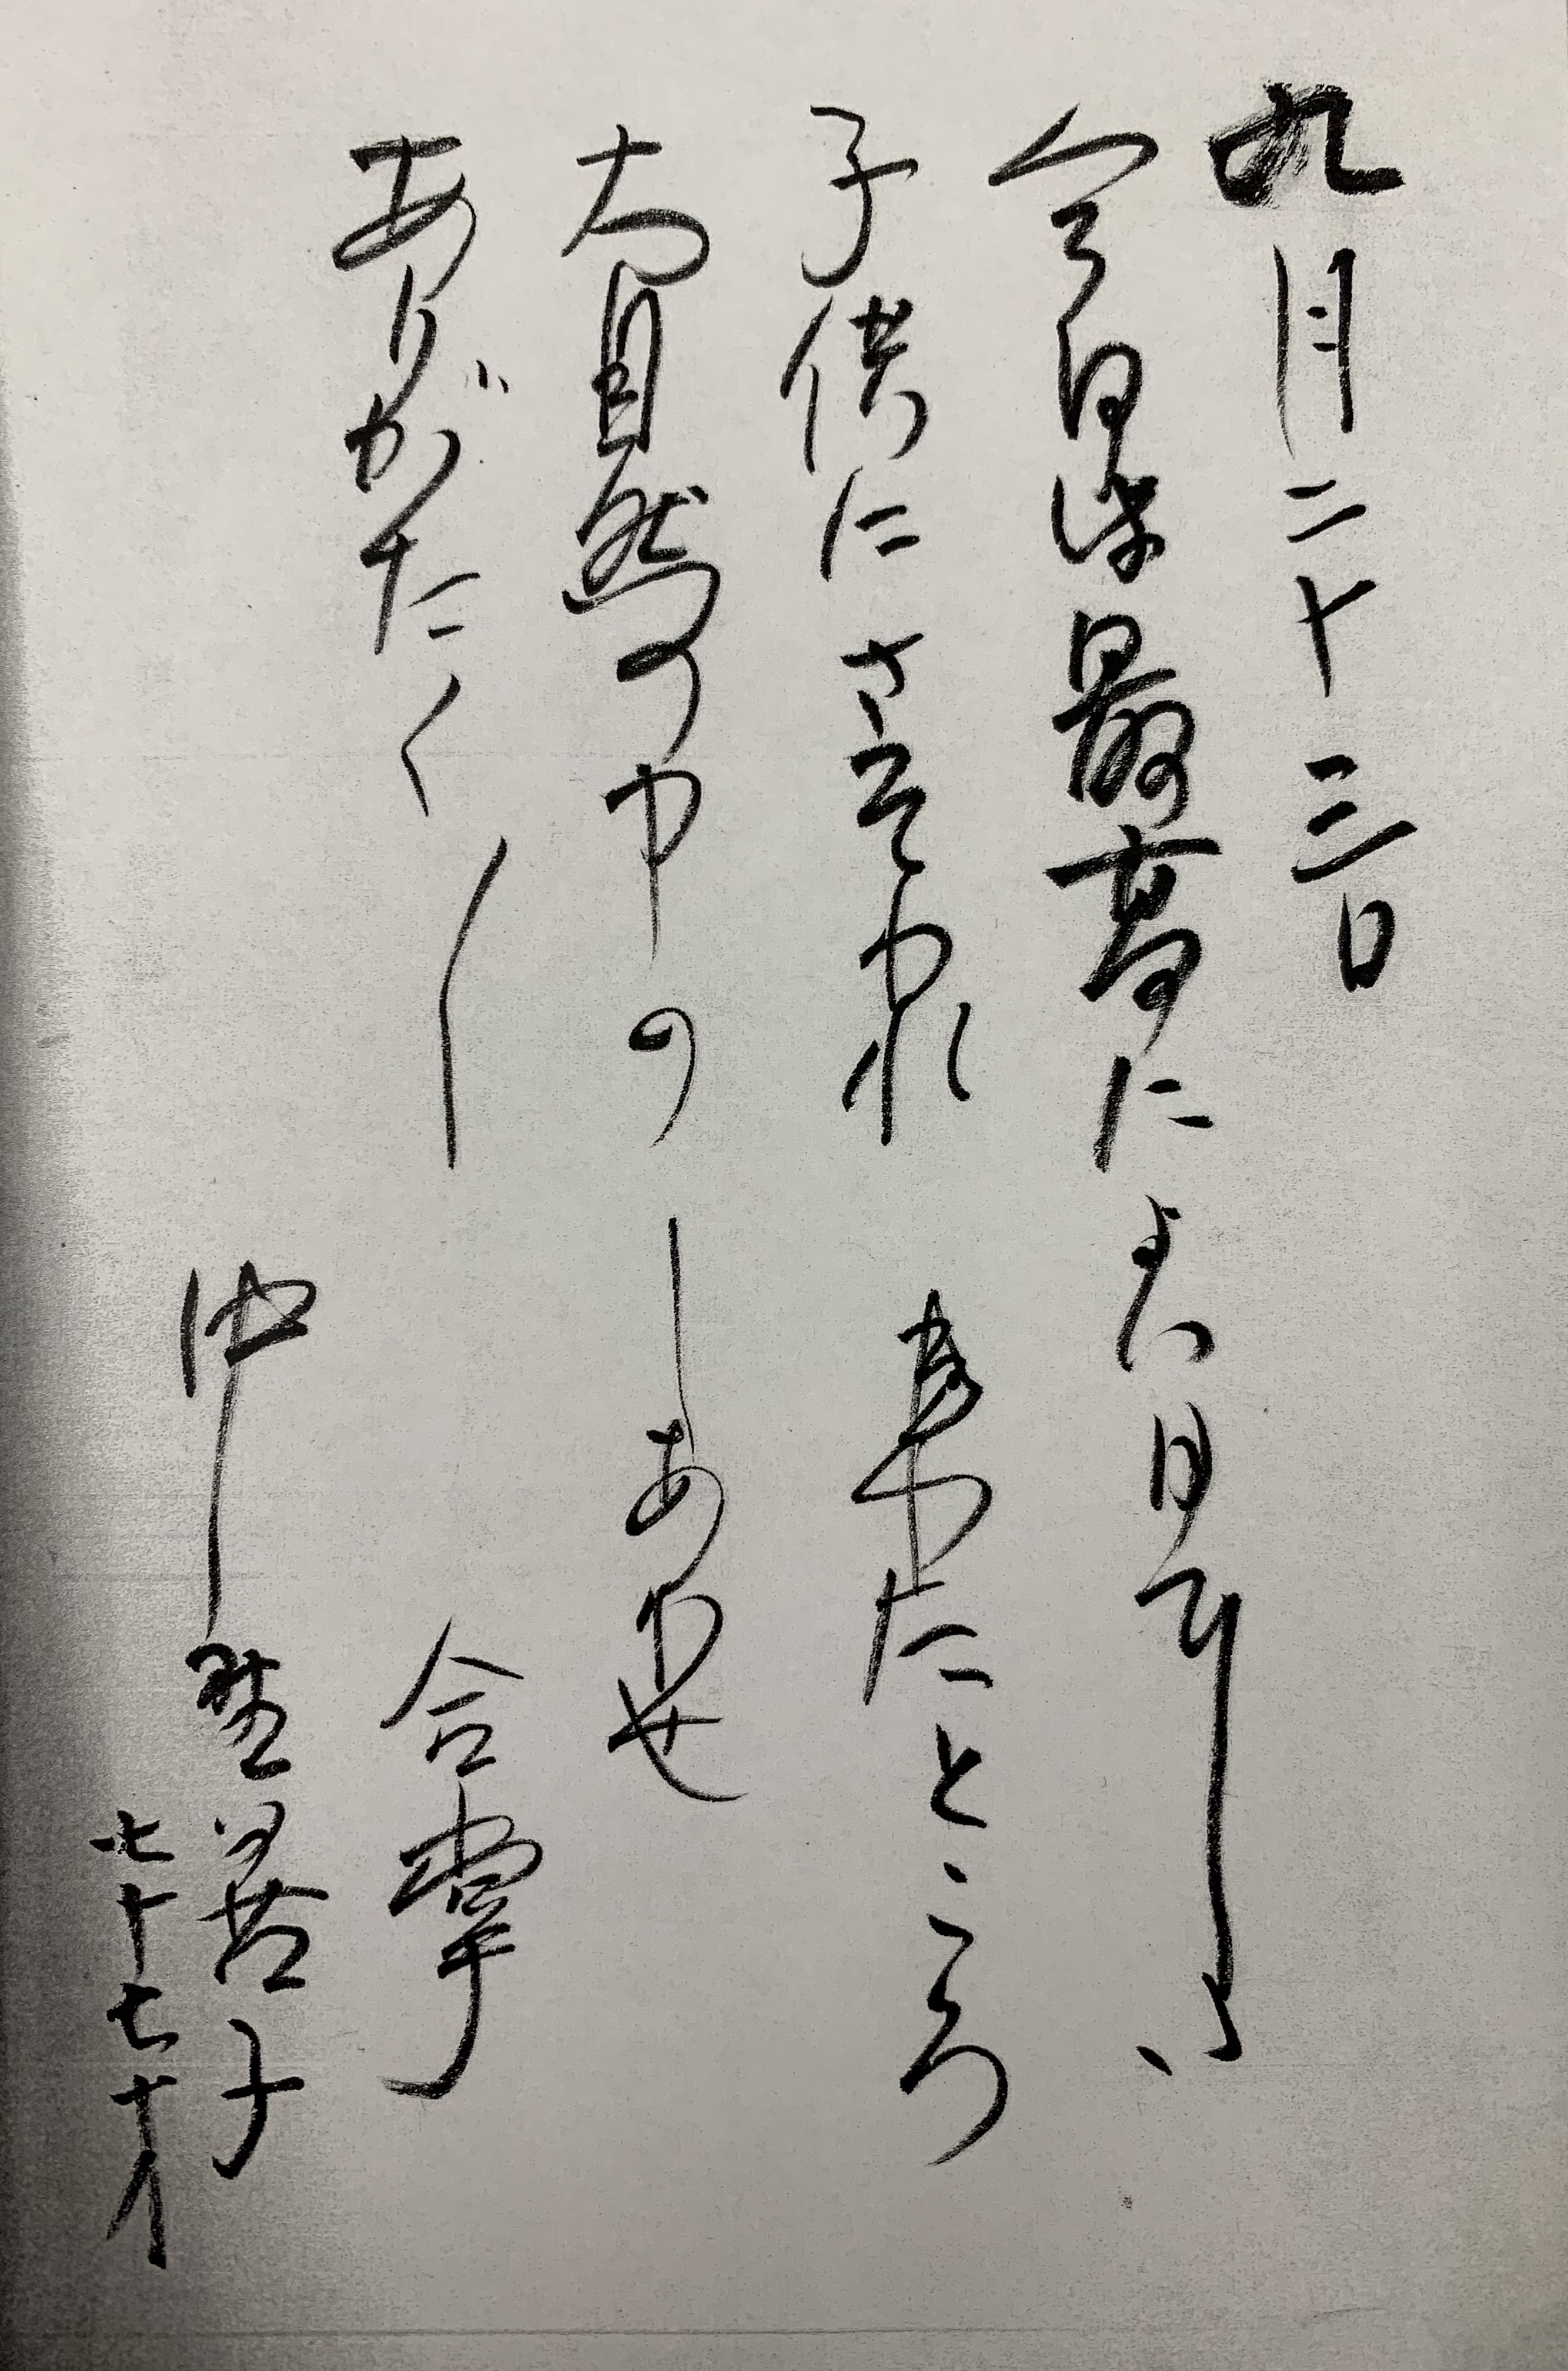 九月二十三日
今日は最高によい日でした
子供にさそわれ 来たところ
大自然の中の しあわせ
ありがたく
合掌
中野若子
七十七才